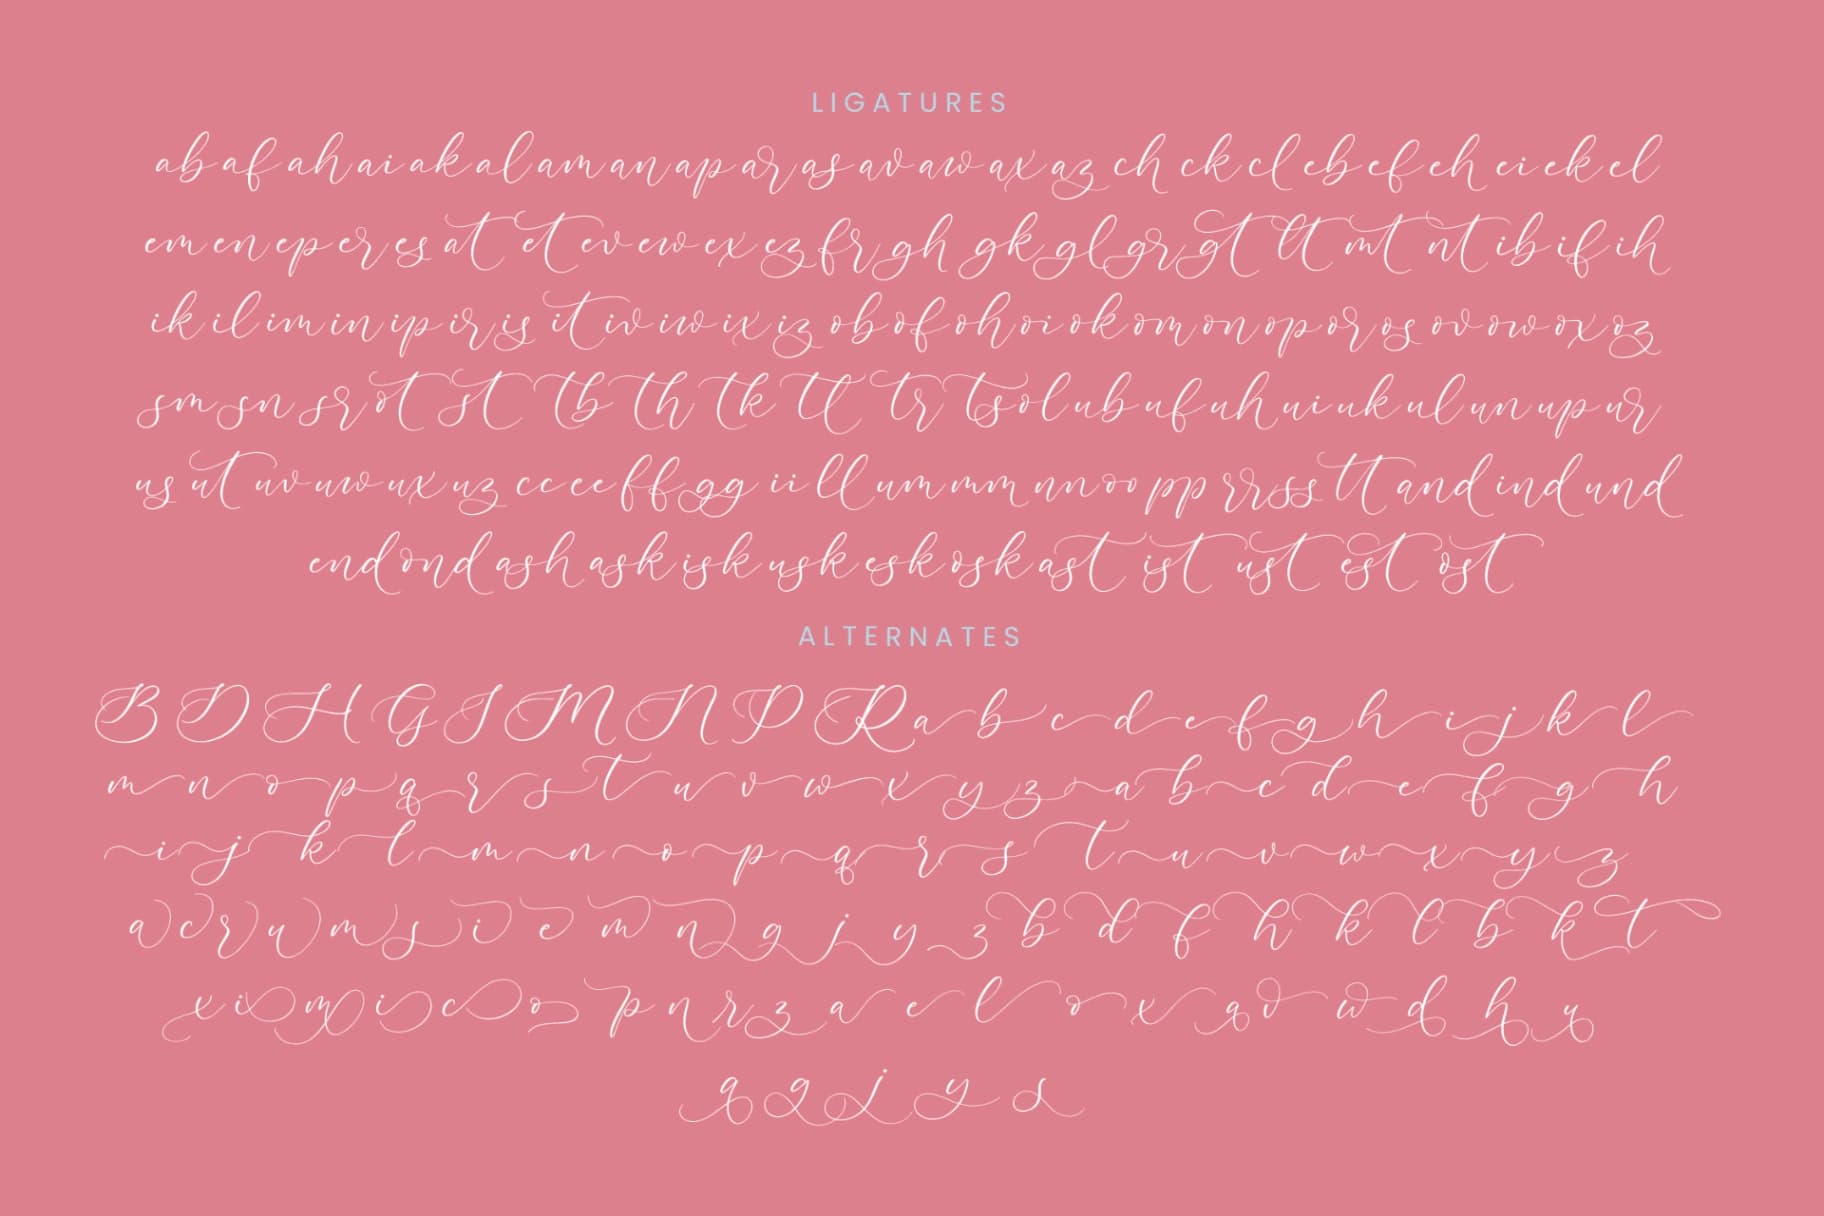 LIGATURES
ab af ah ai ak al am an ap ar as av aw ax az ch ck cl eb ef eh ei ek el
em en ep er es at et ev ew ex ez fr gh gk gl gr gt lt mt nt ib if ih
ik il im in ip ir is it iv iw ix iz ob of oh oi ok om on op or os ov ow ox oz
sm sn sr ot st tb th tk tl tr ts ol ub uf uh ui uk ul un up ur
us ut uv uw ux uz cc ee ff gg ii ll um mm nn oo pp rr ss tt and ind und
end ond ash ask isk usk esk osk ast ist ust est ost
ALTERNATES
B D H G I M N P R a b c d e f g h i j k l
m n o p q r s t u v w x y z a b c d e f g h
i j k l m n o p q r s t u v w x y z
a c r u m s i e m n g j y z b d f h k l b k t
x i m i c o p n r z a e l o x q v w d h u
q g j y s